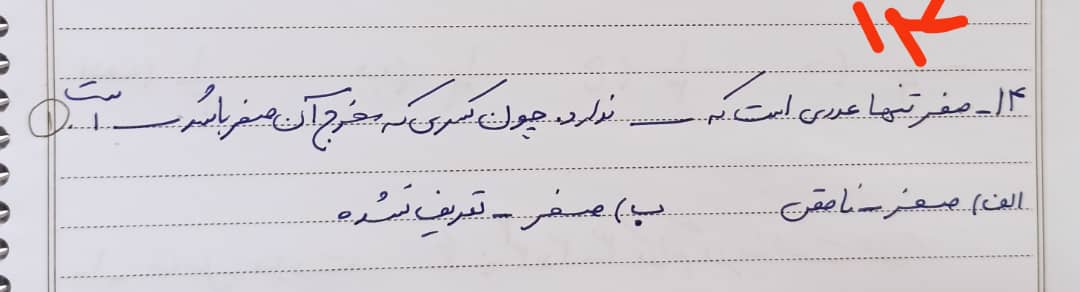 ۱۴
۱۴- صفر تنها عددی است که ــــ ندارد. چون کسری که مخرج آن صفر باشد ــــ است. ۱
الف) صفر - ناقص ب) صفر - تعریف نشده